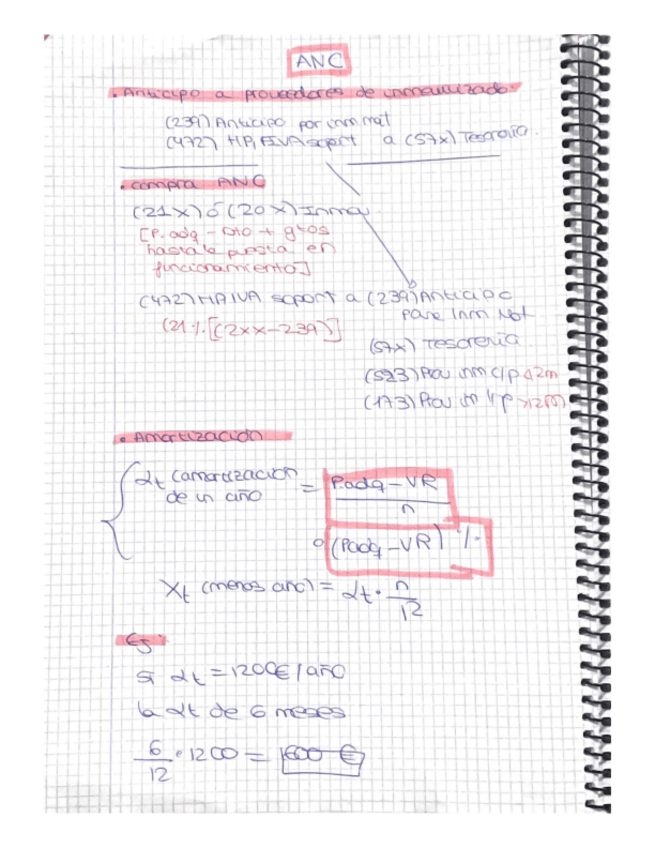 ANC
• Anticipo a proveedores de inmovilizado:
(239) Anticipo por inm mat
(472) HP, IVA soport a (57x) Tesorería.
• compra ANC
(21x) ó (20x) Inmov.
[P. adq - Dto + gtos
hasta la puesta en
funcionamiento]
(472) HP IVA soport a (239) Anticipo
para Inm Mat
(21% [(2xx-239)]
(57x) Tesorería
(523) Prov inm c/p <12m
(173) Prov inm l/p >12m
• Amortización
αt (amortización
de un año = P.adq - VR
n
o (Padq - VR) %
Xt (menos año) = αt · n
12
Ej:
Si αt = 1200€/año
la αt de 6 meses
6 · 1200 = 600 €
12